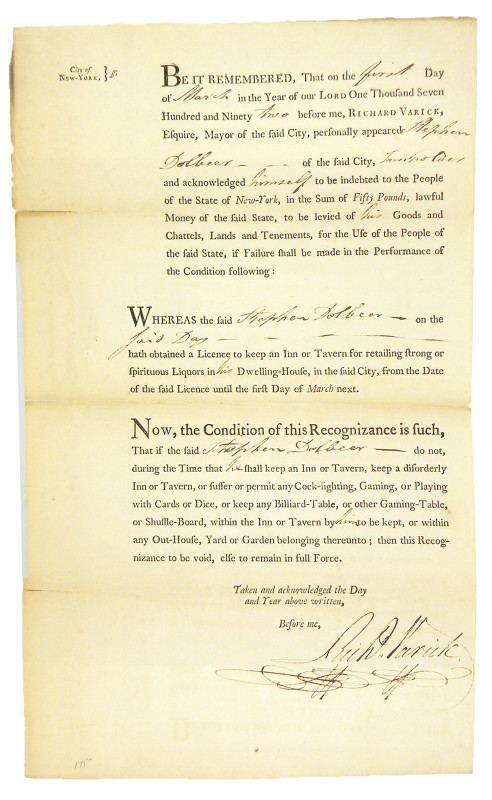 City of
NEW-YORK, } ſſ.
BE IT REMEMBERED, That on the first Day
of March in the Year of our LORD One Thouſand Seven
Hundred and Ninety two before me, RICHARD VARICK,
Eſquire, Mayor of the ſaid City, perſonally appeared Stephen
Dolbeer — — of the ſaid City, Innholder
and acknowledged himself to be indebted to the People
of the State of New-York, in the Sum of Fifty Pounds, lawful
Money of the ſaid State, to be levied of his Goods and
Chattels, Lands and Tenements, for the Uſe of the People of
the ſaid State, if Failure ſhall be made in the Performance of
the Condition following:
WHEREAS the ſaid Stephen Dolbeer — on the
ſaid Day — — — — —
hath obtained a Licence to keep an Inn or Tavern for retailing ſtrong or
ſpirituous Liquors in his Dwelling-Houſe, in the ſaid City, from the Date
of the ſaid Licence until the firſt Day of March next.
NOW, the Condition of this Recognizance is ſuch,
That if the ſaid Stephen Dolbeer — do not,
during the Time that he ſhall keep an Inn or Tavern, keep a diſorderly
Inn or Tavern, or ſuffer or permit any Cock-fighting, Gaming, or Playing
with Cards or Dice, or keep any Billiard-Table, or other Gaming-Table,
or Shuffle-Board, within the Inn or Tavern by him to be kept, or within
any Out-Houſe, Yard or Garden belonging thereunto; then this Recog-
nizance to be void, elſe to remain in full Force.
Taken and acknowledged the Day
and Year above written,
Before me,
Richd. Varick.